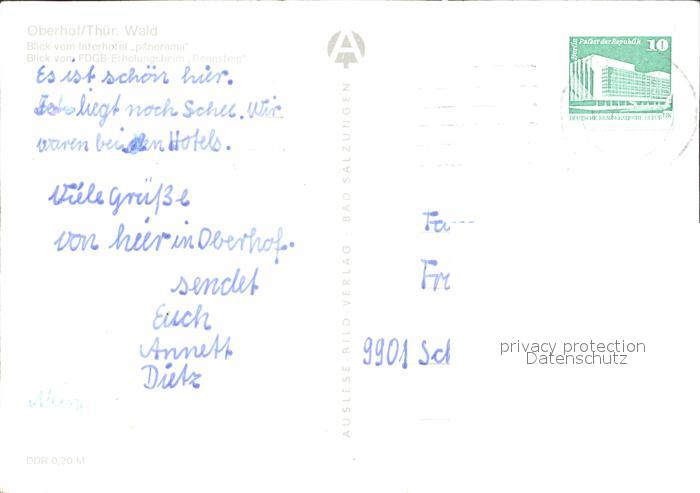 Oberhof/Thür. Wald
Blick vom Interhotel „panorama“
Blick vom FDGB-Erholungsheim „Rennsteig“
Es ist schön hier.
liegt noch Schee. Wir
waren bei den Hotels.
Viele Grüße
von hier in Oberhof.
sendet
Euch
Annett
Dietz
DDR 0,20 M
AUSLESE-BILD-VERLAG · BAD SALZUNGEN
Berlin Palast der Republik 10
DEUTSCHE DEMOKRATISCHE REPUBLIK
Fa
Fr
9901 Sch
privacy protection
Datenschutz